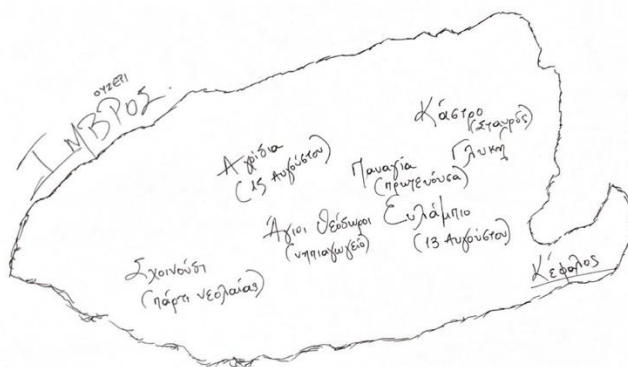 ουζερί
ΙΜΒΡΟΣ.
Κάστρο
(Σταυρός)
Γλυκή
Αγρίδια
(15 Αυγούστου)
Παναγία
(πρωτεύουσα)
Άγιοι Θεόδωροι
(νηπιαγωγείο)
Ευλάμπιο
(13 Αυγούστου)
Σχοινούδι
(πάρτι νεολαίας)
Κέφαλος